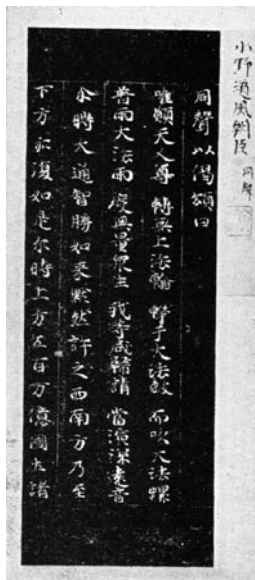 小野道風朝臣 同聲
同聲以偈頌曰
唯願天人尊 轉無上法輪 擊于大法鼓 而吹大法螺
普雨大法雨 度無量眾生 我等咸歸請 當演深遠音
尒時大通智勝如來默然許之西南方乃至
下方亦復如是尒時上方五百万億國土諸